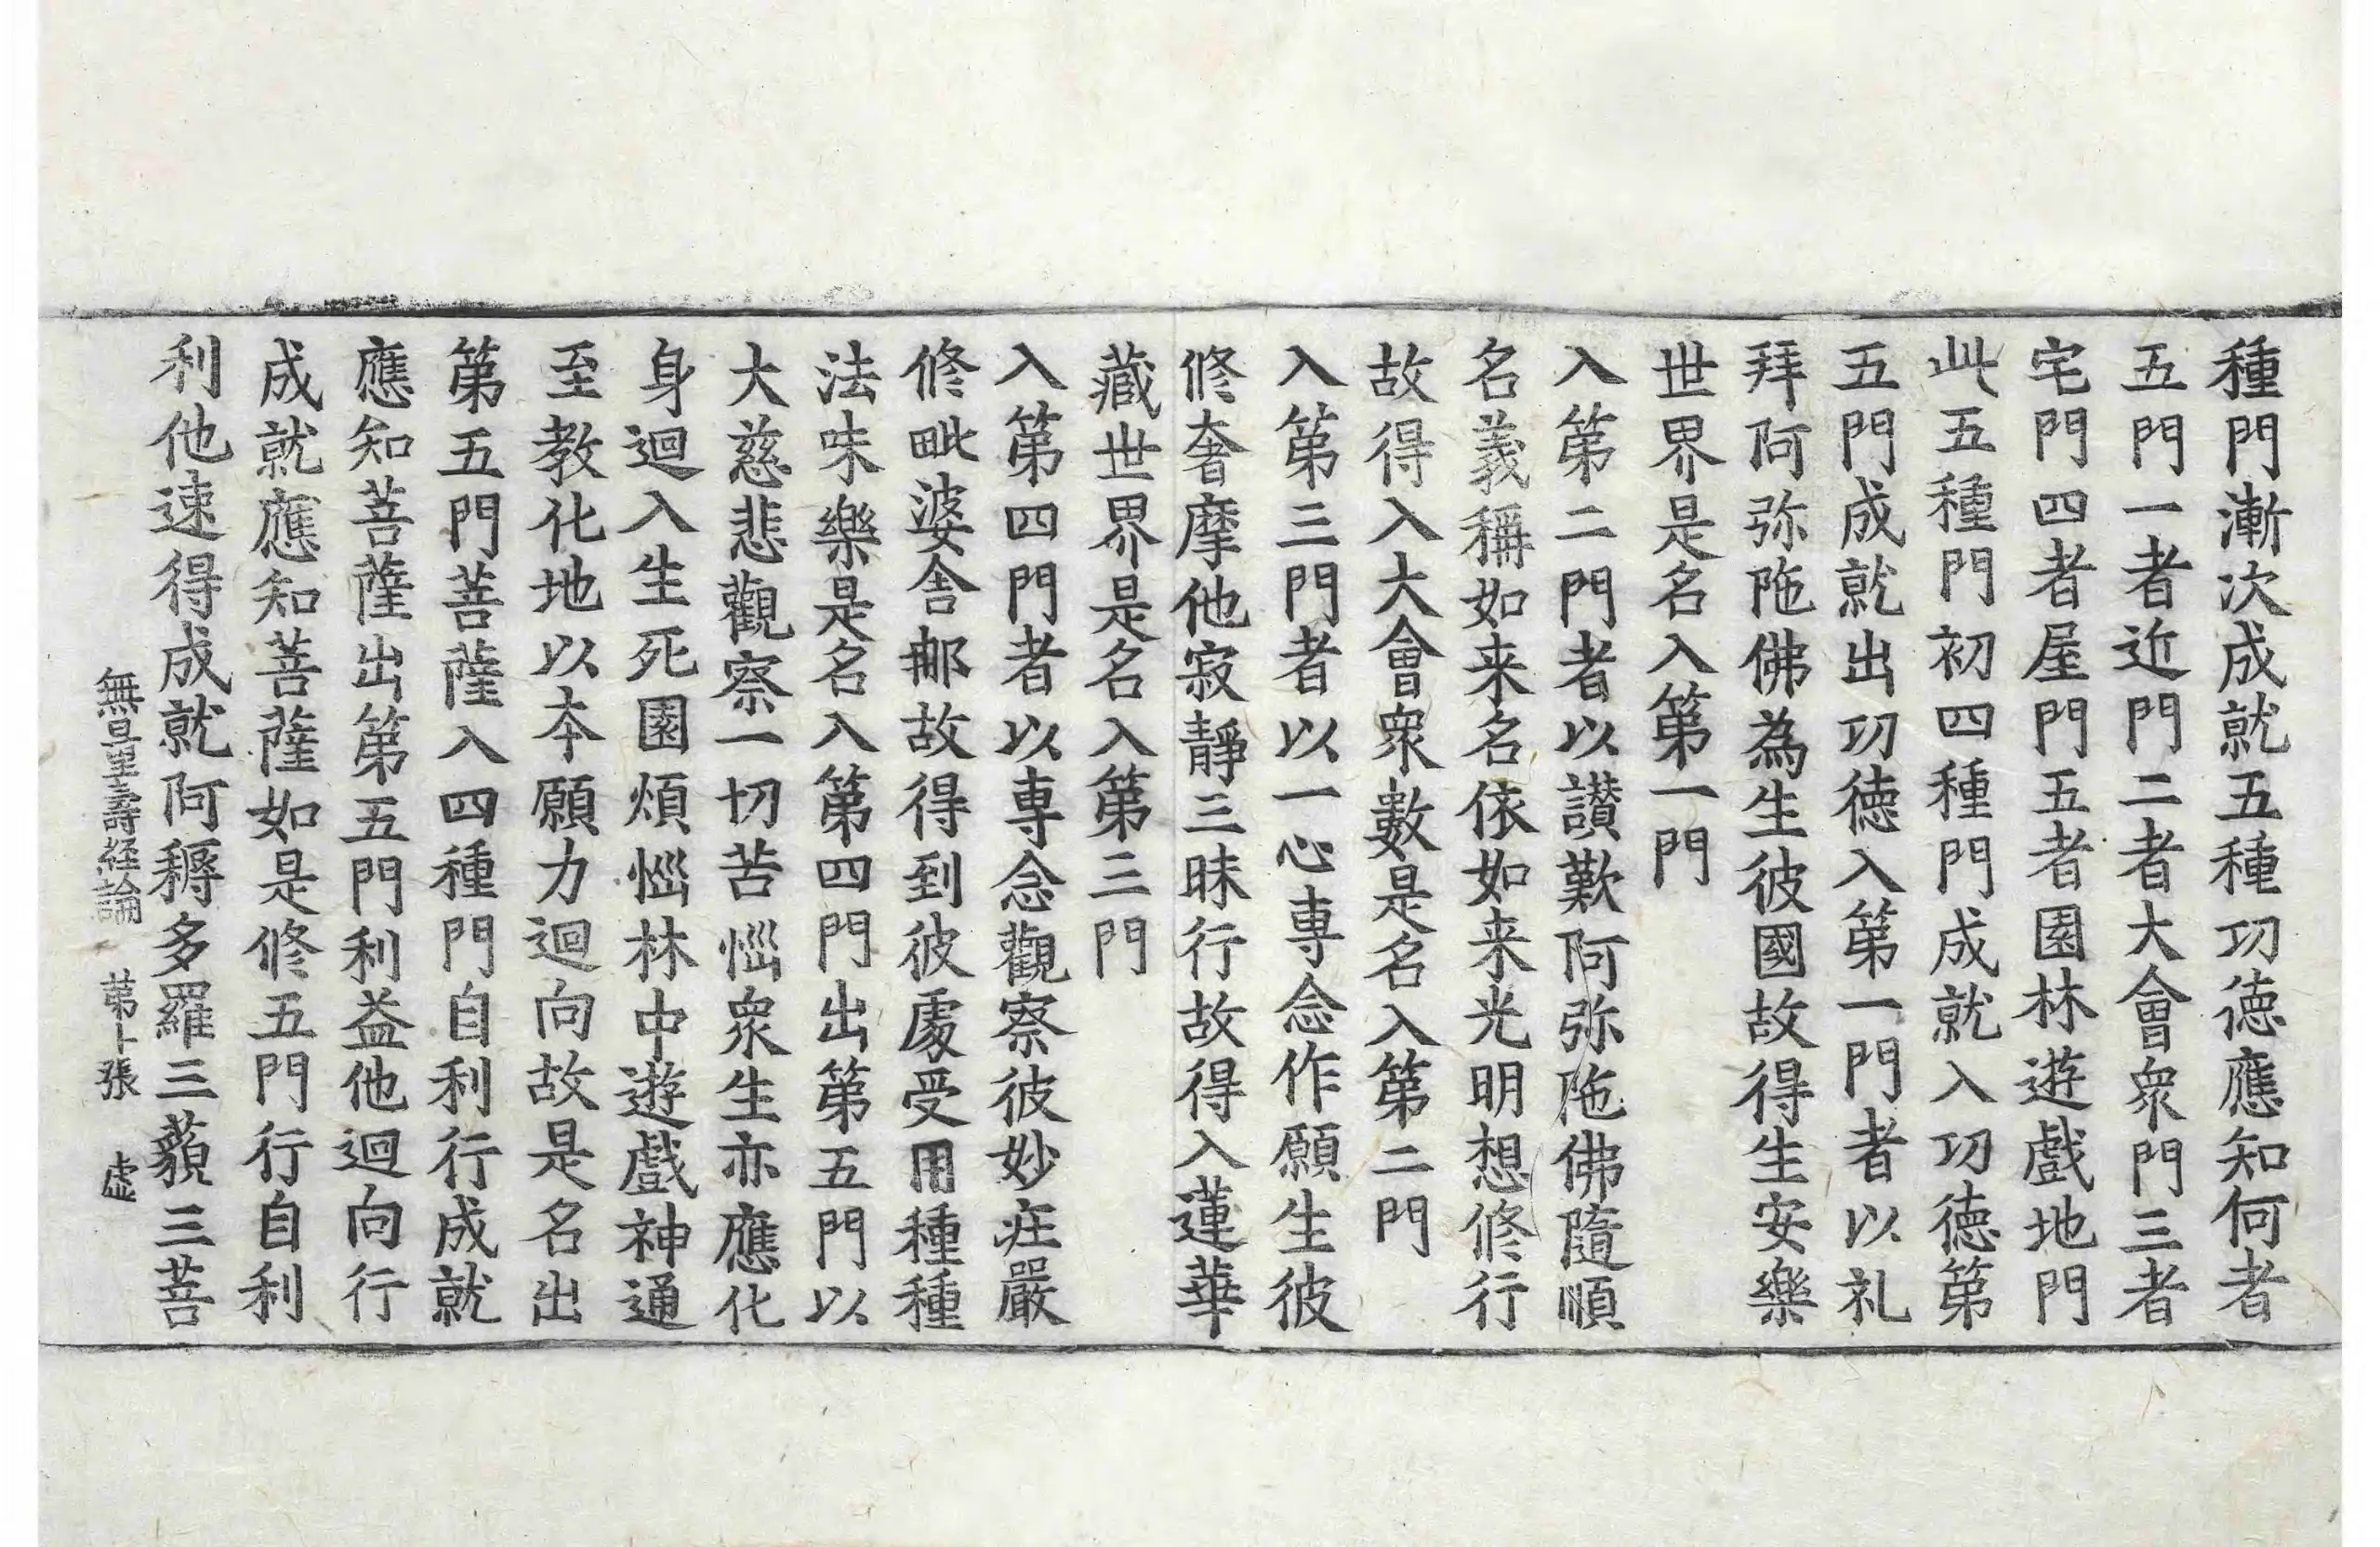 種門漸次成就五種功徳應知何者
五門一者近門二者大會衆門三者
宅門四者屋門五者園林遊戯地門
此五種門初四種門成就入功徳第
五門成就出功徳入第一門者以礼
拜阿弥陁佛為生彼國故得生安樂
世界是名入第一門
入第二門者以讃歎阿弥陁佛隨順
名義稱如来名依如来光明想修行
故得入大會衆數是名入第二門
入第三門者以一心専念作願生彼
修奢摩他寂靜三昧行故得入蓮華
藏世界是名入第三門
入第四門者以専念觀察彼妙庄嚴
修毗婆舎那故得到彼處受用種種
法味樂是名入第四門出第五門以
大慈悲觀察一切苦惱衆生亦應化
身迴入生死園煩惱林中遊戯神通
至教化地以本願力迴向故是名出
第五門菩薩入四種門自利行成就
應知菩薩出第五門利益他迴向行
成就應知菩薩如是修五門行自利
利他速得成就阿耨多羅三藐三菩
無量壽経論　第卜張　虚